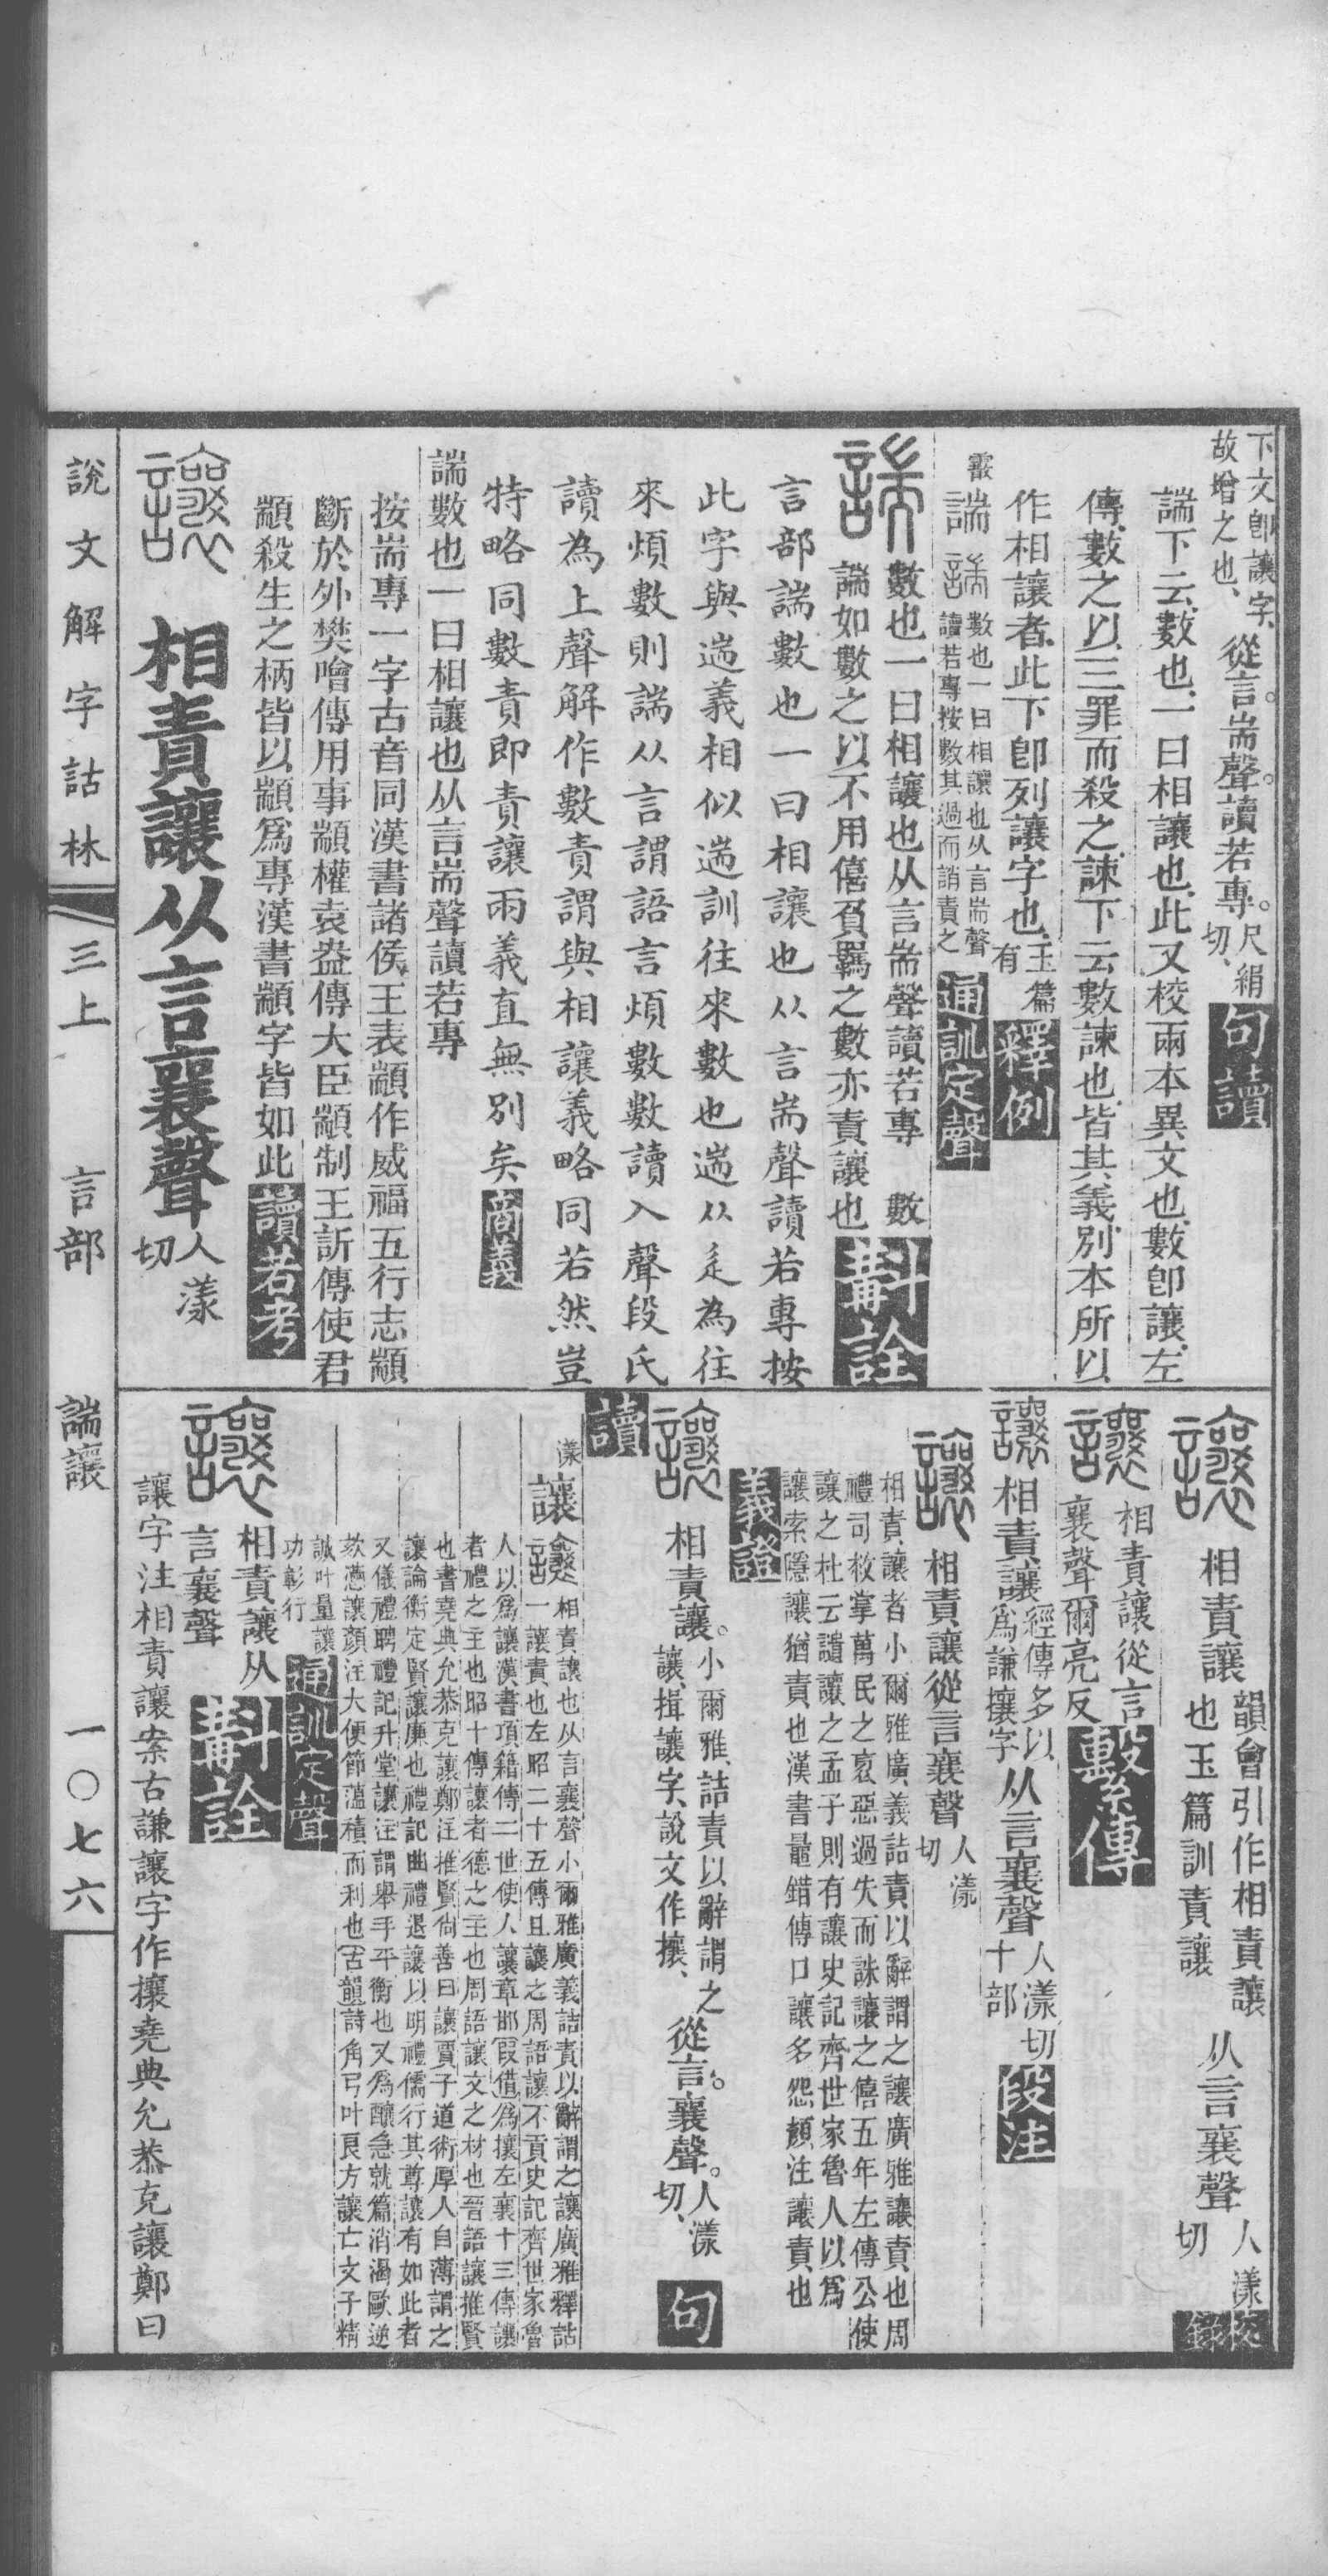 下文卽讓字、
故增之也、
從言。耑聲。讀若專。
尺絹
切、
句讀
諯下云、數也、一曰相讓也、此又校兩本異文也、數卽讓、左
傳、數之以三罪而殺之、諫下云數諫也、皆其義、別本所以
作相讓者、此下卽列讓字也、
玉篇
有
釋例
諯
數也一曰相讓也从言耑聲
讀若專按數其過而誚責之
通訓定聲
數也一曰相讓也从言耑聲讀若專 數
諯如數之以不用僖負羈之數亦責讓也
斠詮
言部諯數也一曰相讓也从言耑聲讀若專按
此字與遄義相似遄訓往來數也遄从辵為往
來煩數則諯从言謂語言煩數數讀入聲段氏
讀為上聲解作數責謂與相讓義略同若然豈
特略同數責即責讓兩義直無別矣
商義
諯數也一曰相讓也从言耑聲讀若專
按耑專一字古音同漢書諸侯王表顓作威福五行志顓
斷於外樊噲傳用事顓權袁盎傳大臣顓制王訢傳使君
顓殺生之柄皆以顓爲專漢書顓字皆如此
讀若考
相責讓从言襄聲
人漾
切
相責讓
韻會引作相責讓
也玉篇訓責讓
从言襄聲
人漾
切
校錄
相責讓從言
襄聲爾亮反
繫傳
相責讓
經傳多以
爲謙攘字
从言襄聲
人漾切
十部
段注
相責讓從言襄聲
人漾
切
相責讓者小爾雅廣義詰責以辭謂之讓廣雅讓責也周
禮司救掌萬民之衺惡過失而誅讓之僖五年左傳公使
讓之杜云譴讓之孟子則有讓史記齊世家魯人以爲
讓索隱讓猶責也漢書鼂錯傳口讓多怨顏注讓責也
義證
相責讓。
小爾雅、詰責以辭謂之
讓、揖讓字、說文作攘、
從言。襄聲。
人漾
切、
句
讀
讓
相責讓也从言襄聲小爾雅廣義詰責以辭謂之讓廣雅釋詁
一讓責也左昭二十五傳且讓之周語讓不貢史記齊世家魯
人以爲讓漢書項籍傳二世使人讓章邯叚借爲攘左襄十三傳讓
者禮之主也昭十傳讓者德之主也周語讓文之材也晉語讓推賢
也書堯典允恭克讓鄭注推賢尙善曰讓賈子道術厚人自薄謂之
讓論衡定賢讓廉也禮記曲禮退讓以明禮儒行其尊讓有如此者
又儀禮聘禮記升堂讓注謂舉手平衡也又爲釀急就篇消渴歐逆
欬懣讓顏注大便節蘊積而利也古韻詩角弓叶良方讓亡文子精
誠叶量讓
功彰行
通訓定聲
相責讓从
言襄聲
斠詮
讓字注相責讓案古謙讓字作攘堯典允恭克讓鄭曰
說文解字詁林
三上 言部
諯讓
一〇七六